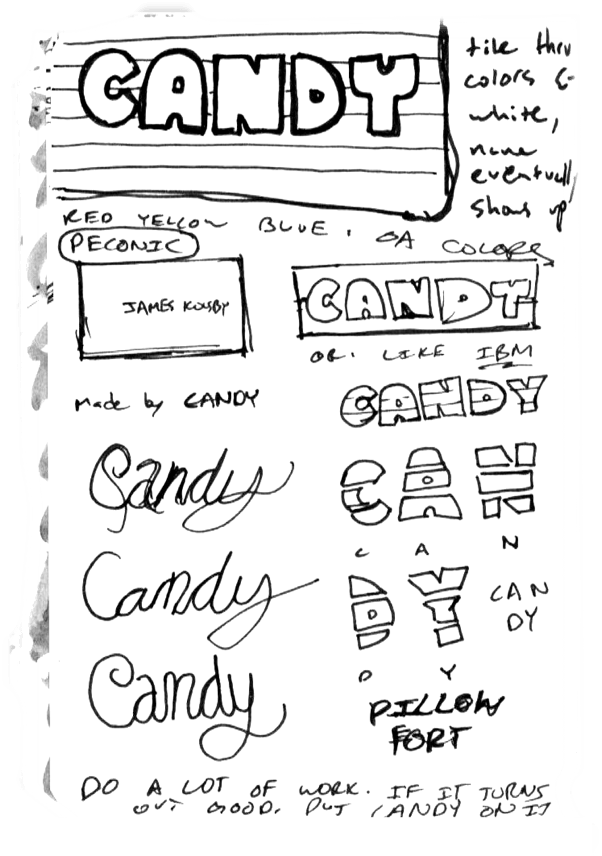 CANDY
tile thru
colors &
white,
name
eventually
shows up
RED YELLOW BLUE, OR COLORS
PECONIC
JAMES
CANDY
OR. LIKE IBM
Made by CANDY
CANDY
Candy
CAN
C A N
Candy
DY
CAN
DY
D Y
Candy
PILLOW
FORT
DO A LOT OF WORK. IF IT TURNS
OUT GOOD, PUT CANDY ON IT